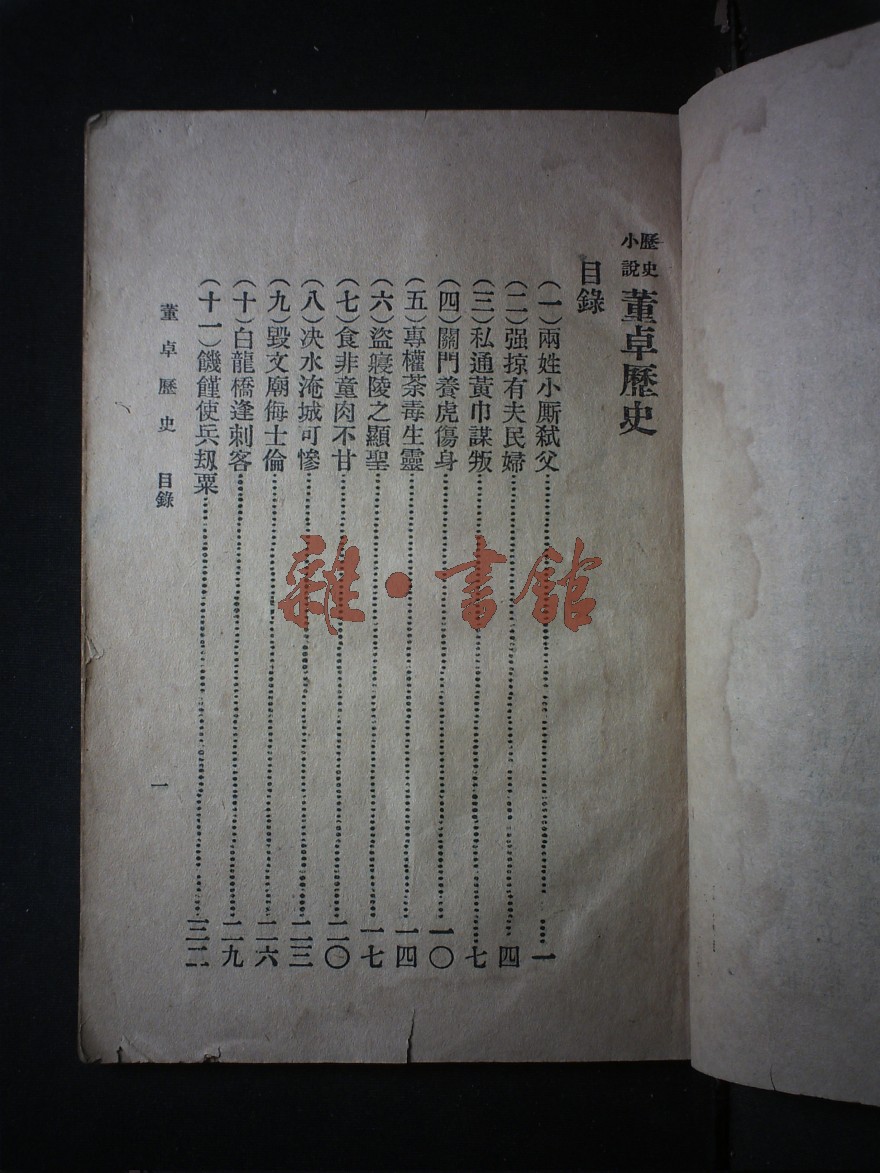 歷史小說 董卓歷史
目錄
(一)兩姓小厮弒父……一
(二)强掠有夫民婦……四
(三)私通黃巾謀叛……七
(四)關門養虎傷身……一〇
(五)專權荼毒生靈……一四
(六)盜寢陵之顯聖……一七
(七)食非童肉不甘……二〇
(八)决水淹城可慘……二三
(九)毀文廟侮士倫……二六
(十)白龍橋逢刺客……二九
(十一)饑饉使兵刼粟……三二
董卓歷史 目錄
一
雜·書館